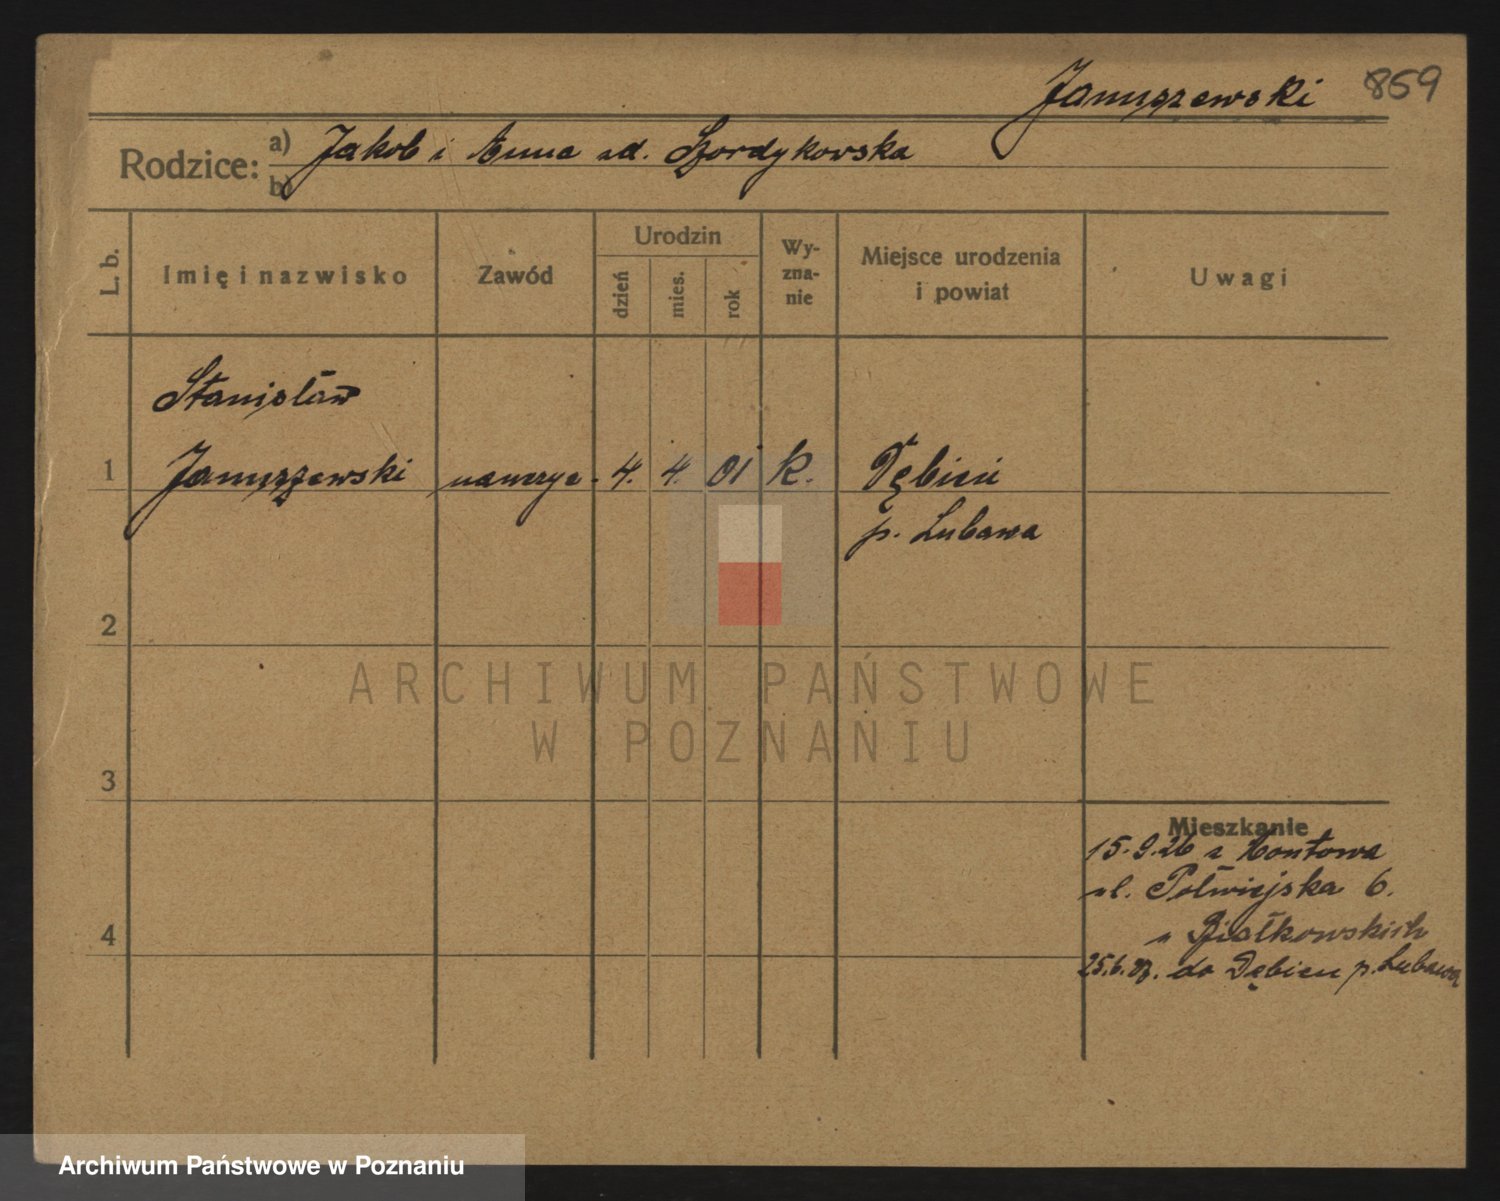 Januszewski 859
Rodzice: a) Jakob i Anna ud. Szordykowska
b)
L. b. Imię i nazwisko Zawód Urodzin dzień mies. rok Wyznanie Miejsce urodzenia i powiat Uwagi
Stanisław
1 Januszewski nauczyc. 4. 4. 01 k. Dębień
p. Lubawa
2
ARCHIWUM PAŃSTWOWE
W POZNANIU
3
Mieszkanie
15.9.26 z Montowa
4 ul. Półwiejska 6.
u Białkowskich
25.6.27. do Dębien p. Lubawa
Archiwum Państwowe w Poznaniu